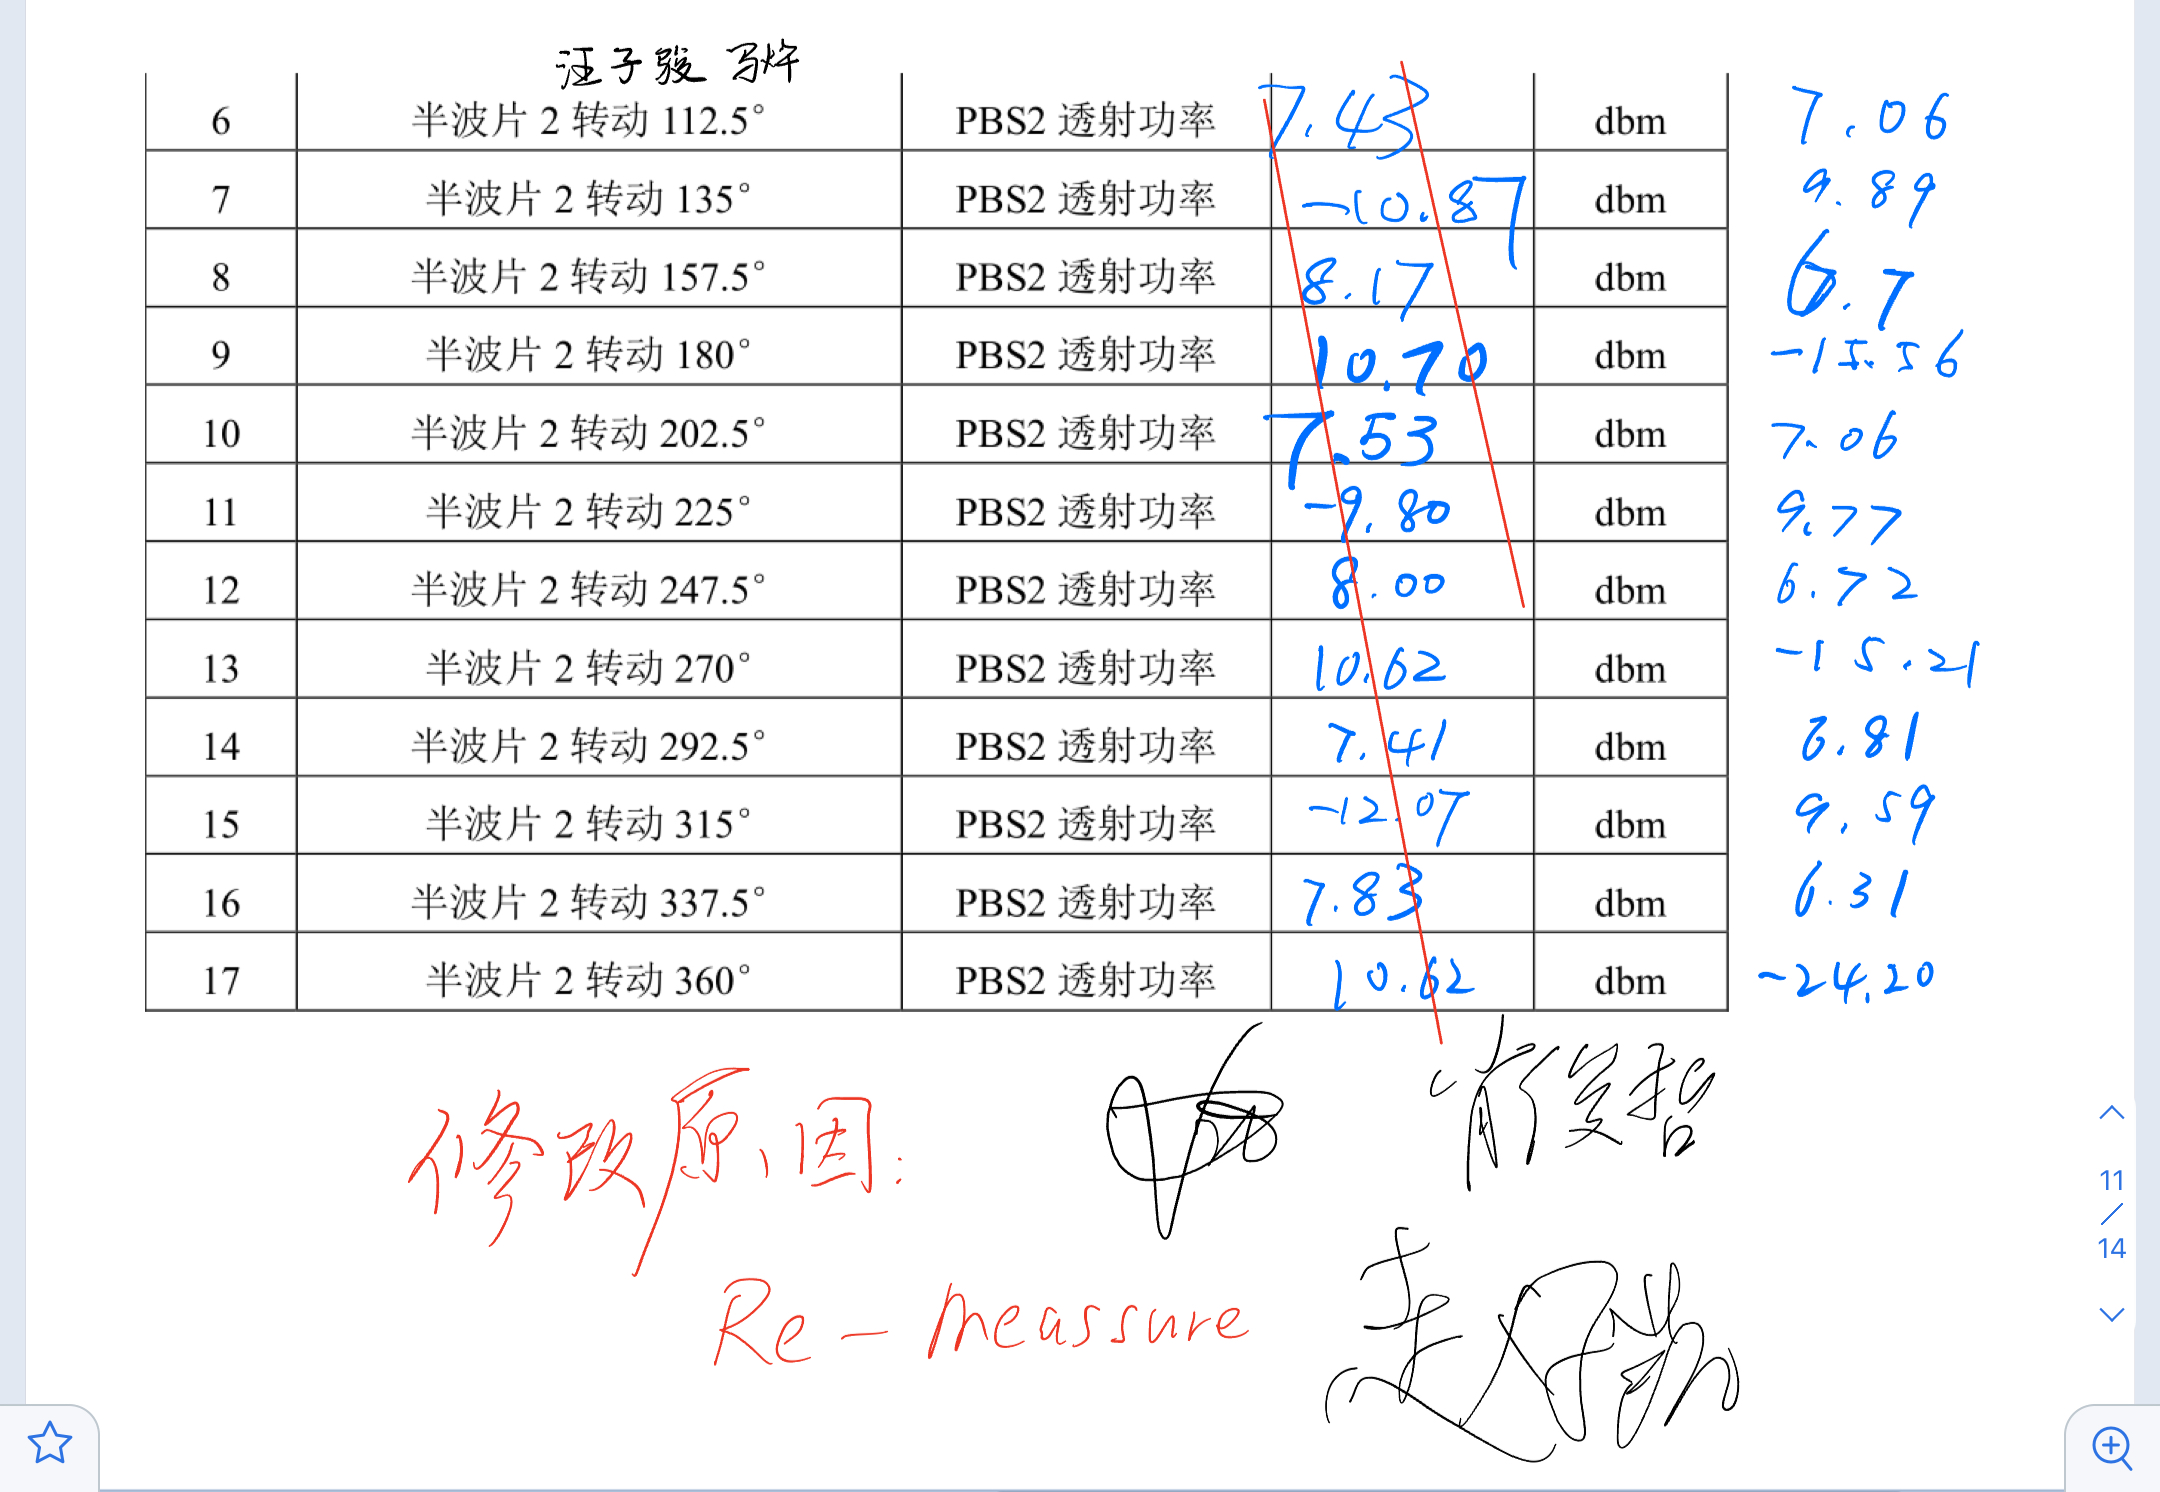 汪子骏 马烨
6 半波片 2 转动 112.5° PBS2 透射功率 7.43 dbm 7.06
7 半波片 2 转动 135° PBS2 透射功率 -10.87 dbm 9.89
8 半波片 2 转动 157.5° PBS2 透射功率 8.17 dbm 6.7
9 半波片 2 转动 180° PBS2 透射功率 10.70 dbm -15.56
10 半波片 2 转动 202.5° PBS2 透射功率 7.53 dbm 7.06
11 半波片 2 转动 225° PBS2 透射功率 -9.80 dbm 9.77
12 半波片 2 转动 247.5° PBS2 透射功率 8.00 dbm 6.72
13 半波片 2 转动 270° PBS2 透射功率 10.62 dbm -15.21
14 半波片 2 转动 292.5° PBS2 透射功率 7.41 dbm 6.81
15 半波片 2 转动 315° PBS2 透射功率 -12.07 dbm 9.59
16 半波片 2 转动 337.5° PBS2 透射功率 7.83 dbm 6.31
17 半波片 2 转动 360° PBS2 透射功率 10.62 dbm -24.20
修改原因:
Re-meassure
11
/
14